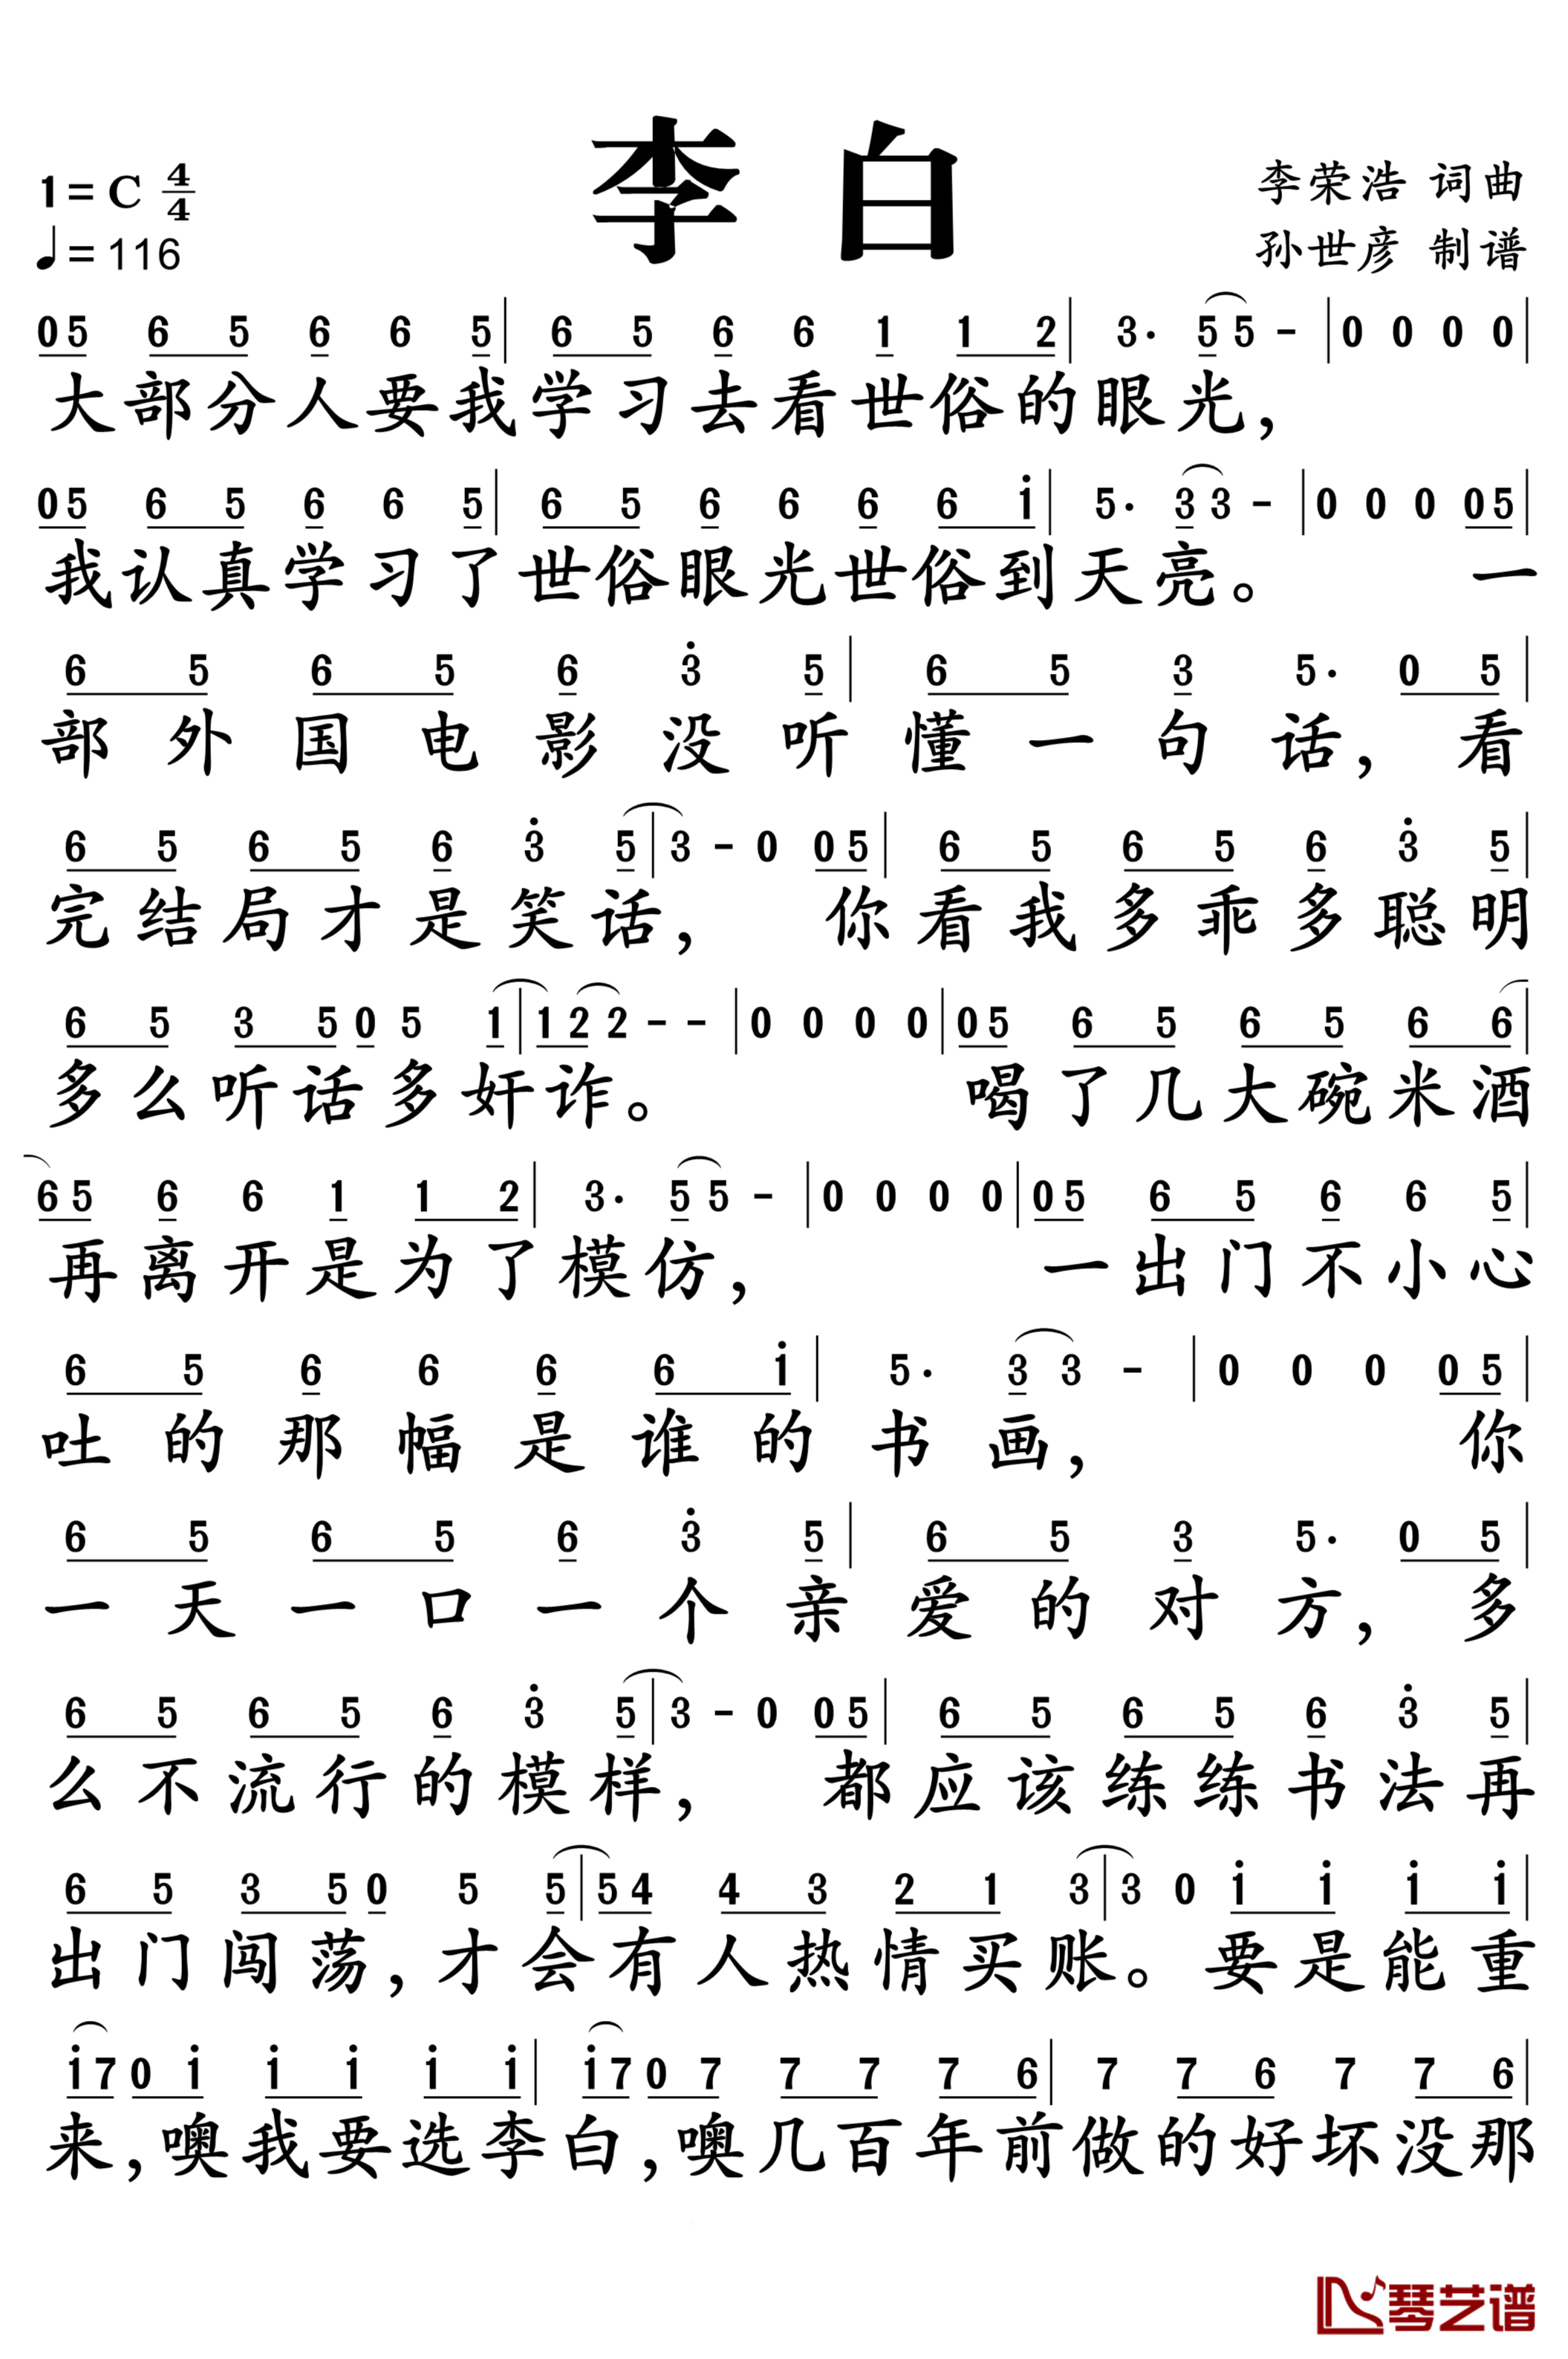 李白
1= C 4/4
♩= 116
李荣浩 词曲
孙世彦 制谱
05 6 5 6 6 5 | 6 5 6 6 1 1 2 | 3· 5 5 - | 0 0 0 0 |
大部分人要我学习去看世俗的眼光，
05 6 5 6 6 5 | 6 5 6 6 6 6 i | 5· 3 3 - | 0 0 0 05 |
我认真学习了世俗眼光世俗到天亮。 一
6 5 6 5 6 3̇ 5 | 6 5 3 5· 0 5 |
部外国电影没听懂一句话，看
6 5 6 5 6 3̇ 5 | 3 - 0 05 | 6 5 6 5 6 3̇ 5 |
完结局才是笑话， 你看我多乖多聪明
6 5 3 5 0 5 1 | 1 2 2 - - | 0 0 0 0 | 05 6 5 6 5 6 6 |
多么听话多奸诈。 喝了几大碗米酒
65 6 6 1 1 2 | 3· 5 5 - | 0 0 0 0 | 05 6 5 6 6 5 |
再离开是为了模仿， 一出门不小心
6 5 6 6 6 6 i | 5· 3 3 - | 0 0 0 0 5 |
吐的那幅是谁的书画， 你
6 5 6 5 6 3̇ 5 | 6 5 3 5· 0 5 |
一天一口一个亲爱的对方，多
6 5 6 5 6 3̇ 5 | 3 - 0 05 | 6 5 6 5 6 3̇ 5 |
么不流行的模样， 都应该练练书法再
6 5 3 5 0 5 5 | 5 4 4 3 2 1 3 | 3 0 i i i i |
出门闯荡，才会有人热情买账。要是能重
i7 0 i i i i i | i7 0 7 7 7 7 6 | 7 7 6 7 7 6 |
来，噢我要选李白，噢几百年前做的好坏没那
琴艺谱